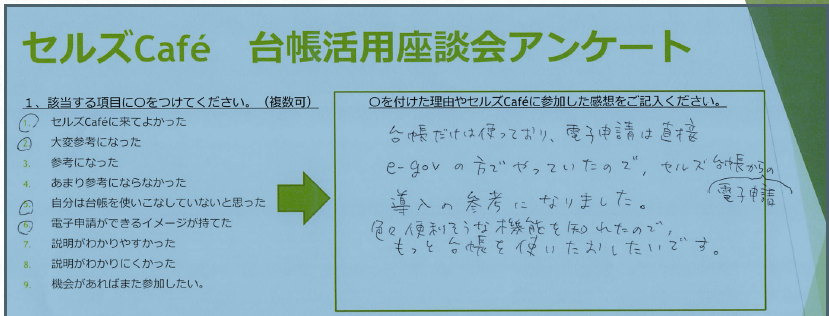 セルズCafé 台帳活用座談会アンケート
1、該当する項目に〇をつけてください。（複数可）
1. セルズCafeに来てよかった
2. 大変参考になった
3. 参考になった
4. あまり参考にならなかった
5. 自分は台帳を使いこなしていないと思った
6. 電子申請ができるイメージが持てた
7. 説明がわかりやすかった
8. 説明がわかりにくかった
9. 機会があればまた参加したい。
〇を付けた理由やセルズCaféに参加した感想をご記入ください。
台帳だけは使っており、電子申請は直接
e-govの方でやっていたので、セルズ台帳からの
電子申請
導入の参考になりました。
色々便利そうな機能を知れたので、
もっと台帳を使いたおしたいです。